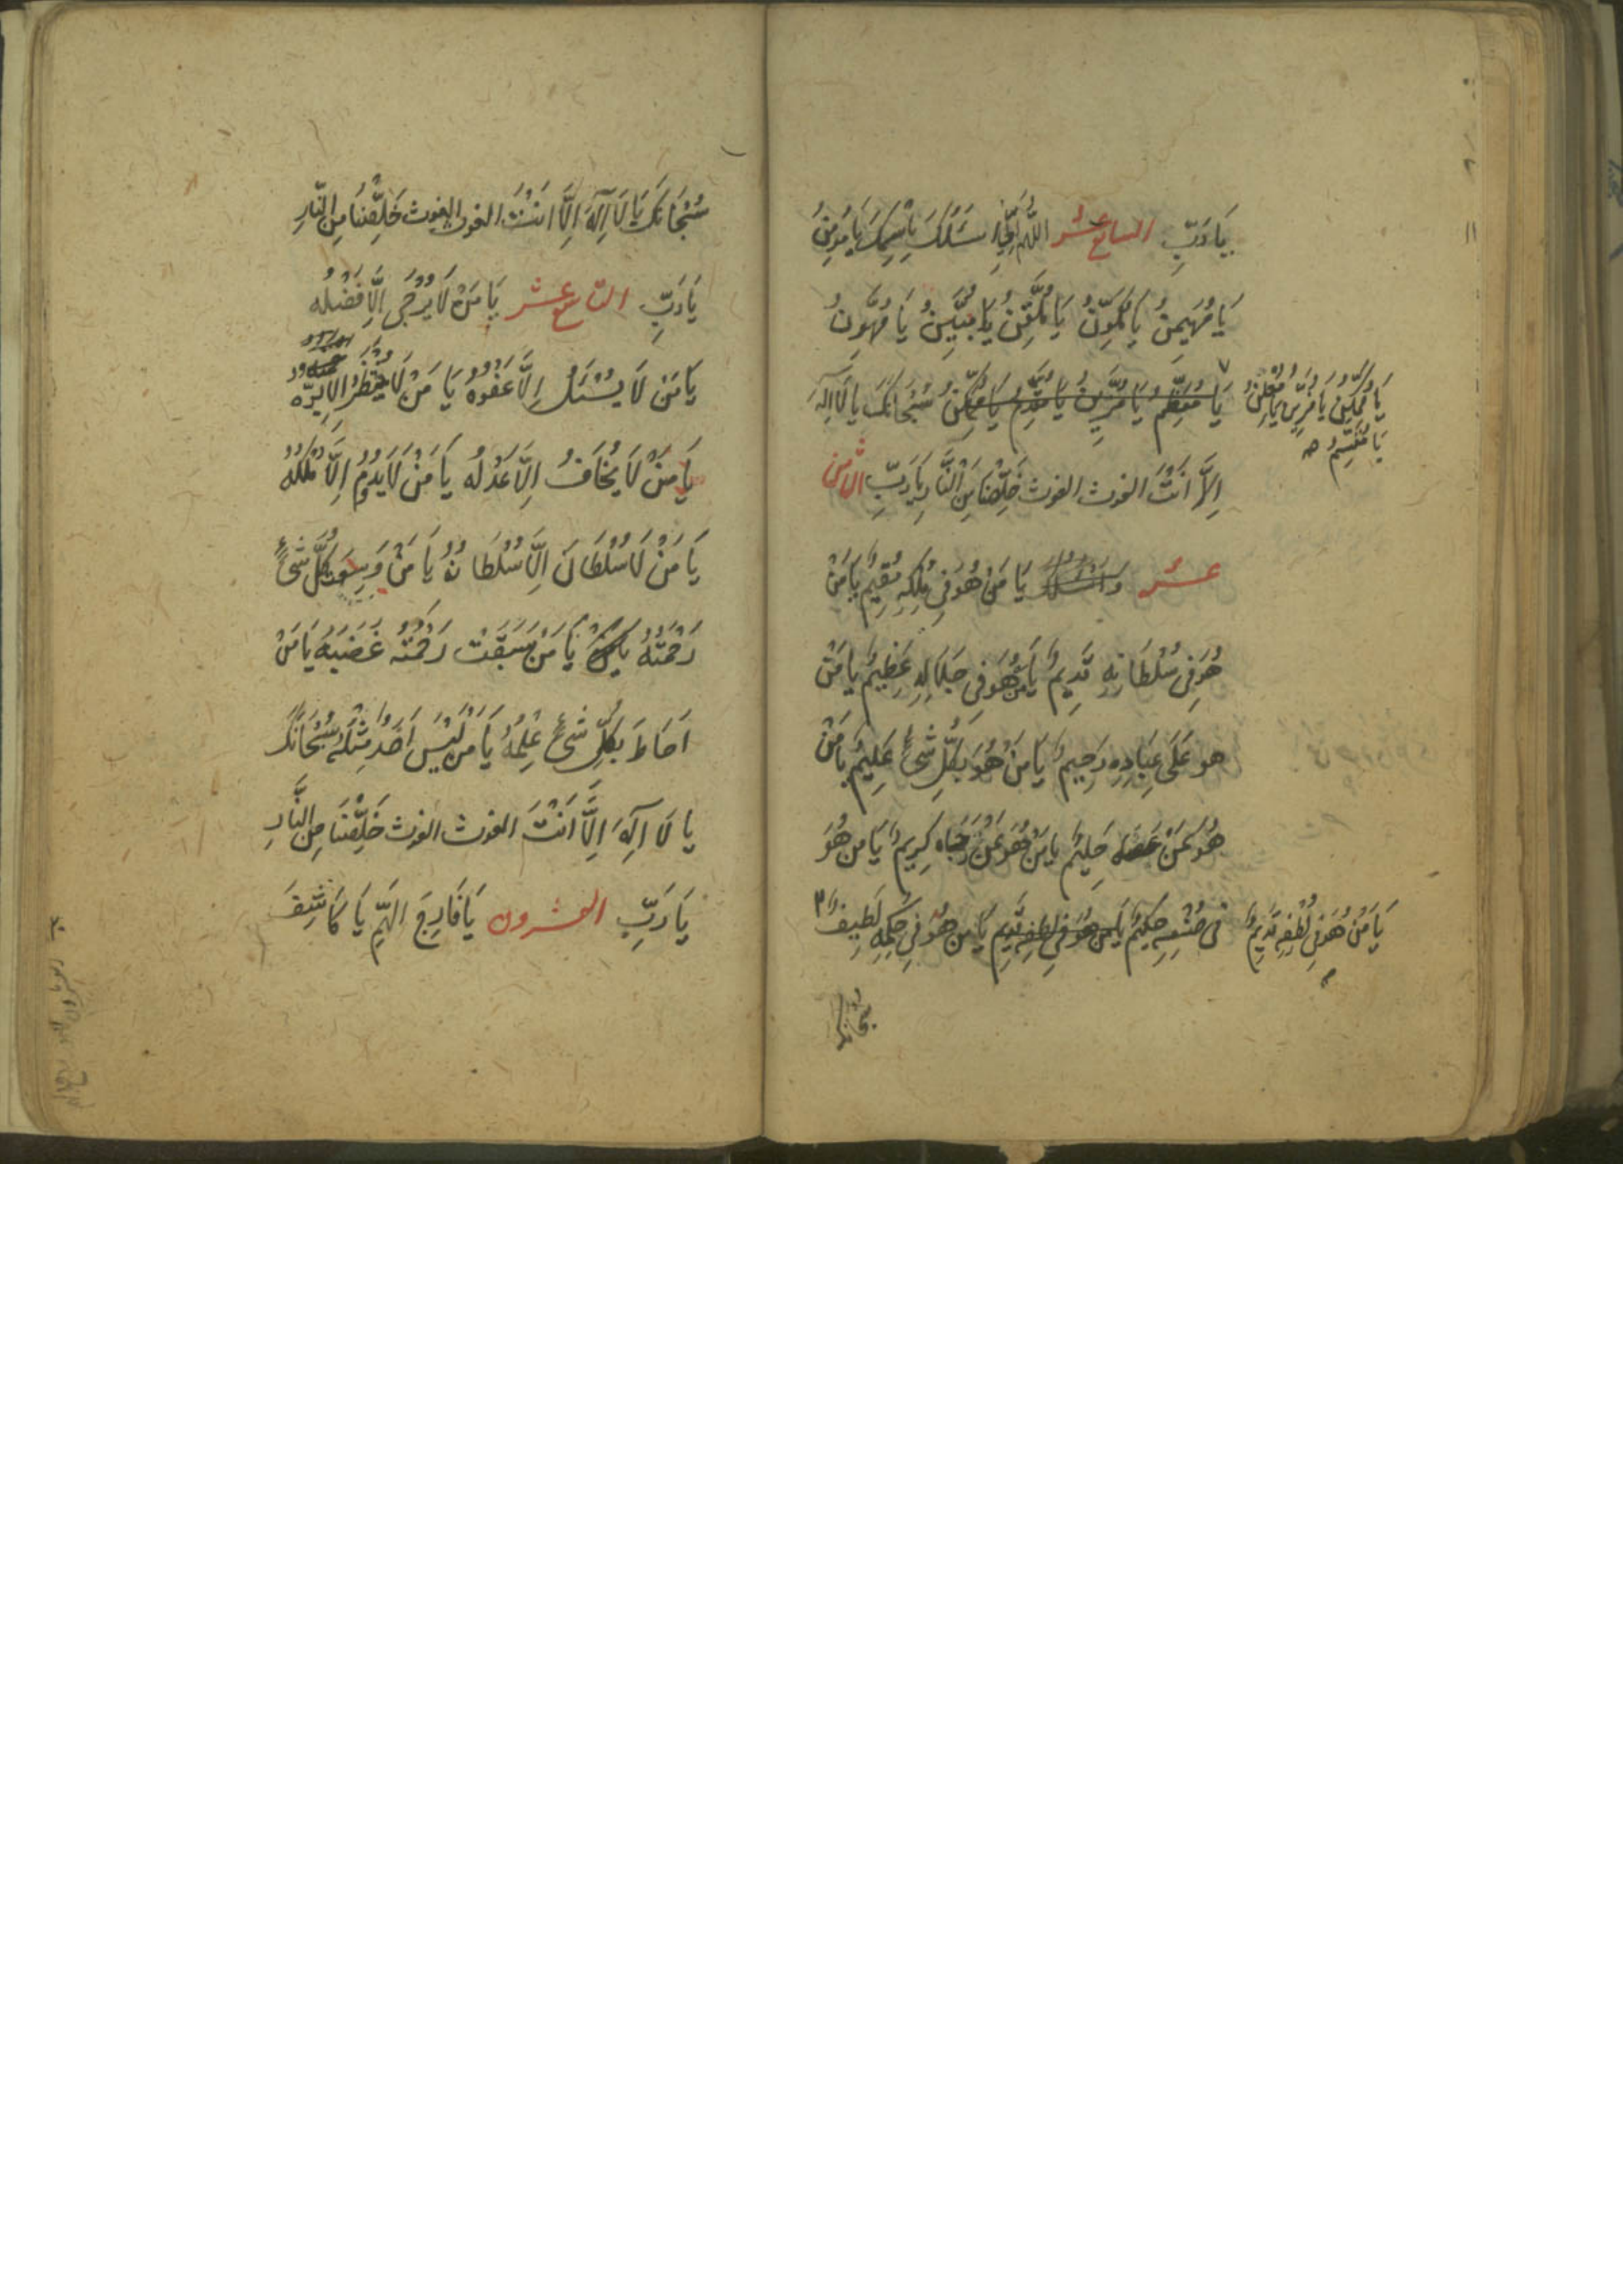 يَا رَبِّ السابع عشر اللّٰهم اِنِّي اَسئَلُكَ بِاسْمِكَ يَا مُؤمِنُ
يَا مُهَيمِنُ يَا مُكَوِّنُ يَا مُلَقِّنُ يَا مُبَيِّنُ يَا مُهَوِّنُ
يَا مُزَيِّنُ يَا مُعَظِّمُ يَا مُمَكِّنُ سُبْحَانَكَ يَا لَا اِلٰهَ
يَا مُمَكِّنُ يَا مُزَيِّنُ يَا مُعْلِنُ
يَا مُقَسِّمُ
اِلَّا اَنْتَ الغوث الغوث خَلِّصْنَا مِنَ النَّارِ يَا رَبِّ الثامن
عشر يَا مَنْ هُوَ فِي مُلكِهِ مُقِيمٌ يَا مَنْ
هُوَ فِي سُلْطَانِهِ قَدِيمٌ يَا مَنْ هُوَ فِي جَلَالِهِ عَظِيمٌ يَا مَنْ
هو عَلَى عِبَادِهِ رَحِيمٌ يَا مَنْ هُوَ بِكُلِّ شَئٍ عَلِيمٌ يَا مَنْ
هُوَ بِمَنْ عَصَاه حَلِيمٌ يا مَنْ هُوَ بِمَنْ رَجَاه كَرِيمٌ يَا مَن هُوَ
فى صُنْعِهِ حَكِيمٌ يَا مَن هُوَ فِي حِكمِهِ لَطِيفٌ
يَا مَنْ هُوَ فِي لُطْفِهِ قَدِيمٌ
سُبْحَانَكَ
سُبْحَانَكَ يَا لَا اِلٰهَ اِلَّا اَنْتَ الغوث الغوث خَلِّصْنَا مِنَ النَّارِ
يَا رَبِّ التاسع عشر يَا مَنْ لَا يُرْجَى اِلَّا فَضْلُه
يَا مَنْ لَا يُسْئَلُ اِلَّا عَفْوُهُ يَا مَنْ لَا يُنْظَرُ اِلَّا بِرُّه
يَا مَنْ لَا يُخَافُ اِلَّا عَدْلُه يَا مَنْ لَا يَدُومُ اِلَّا مُلكُهُ
يَا مَنْ لَا سُلْطَانَ اِلَّا سُلْطَانُهُ يَا مَنْ وَسِعَت كُلَّ شَئٍ
رَحْمَتُهُ يَا مَنْ سَبَقَتْ رَحْمَتُه غَضَبَهُ يَا مَنْ
اَحَاطَ بِكُلِّ شَئٍ عِلْمُهُ يَا مَن لَيْسَ اَحَدٌ مِثْلَهُ سُبْحَانَكَ
يا لَا اِلٰهَ اِلَّا اَنْتَ الغوث الغوث خَلِّصْنَا مِنَ النَّارِ
يَا رَبِّ العشرون يَا فَارِجَ الهَمِّ يَا كَاشِفَ